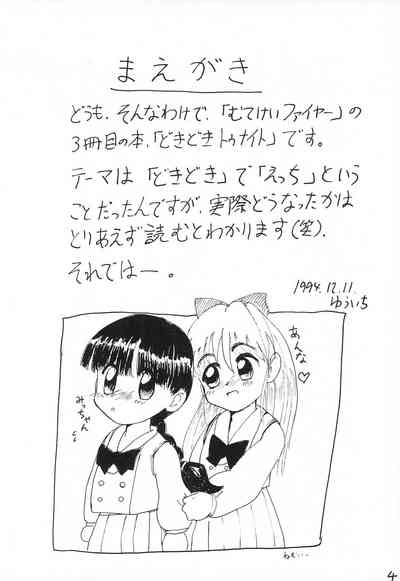 まえがき
どうも、そんなわけで、「むてけいファイヤー」の
3冊目の本、「どきどきトゥナイト」です。
テーマは「どきどき」で「えっち」という
ことだったんですが、実際どうなったかは
とりあえず読むとわかります(笑)、
それではー。
1994.12.11
ゆういち
あんな♡
みっちゃん
4